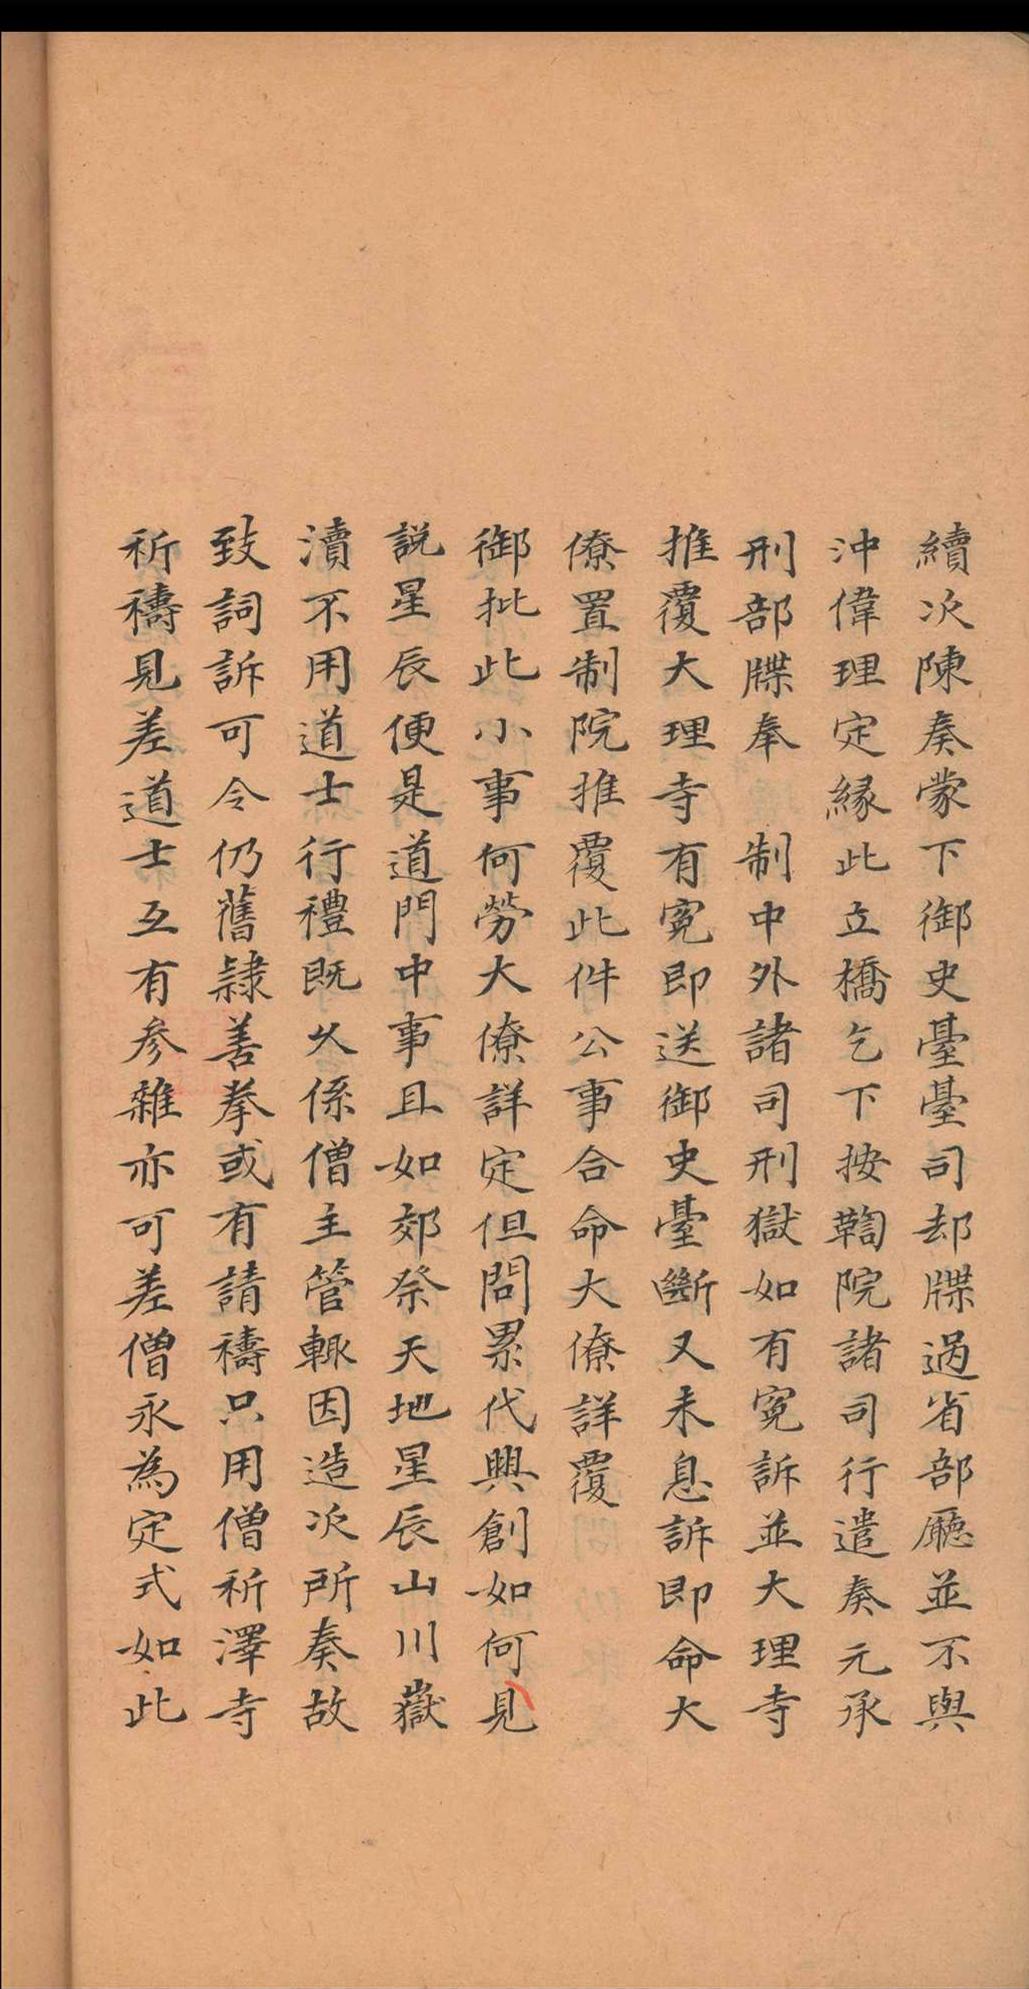 續次陳奏蒙下御史臺臺司却牒過省部廳並不與
沖偉理定縁此立橋乞下按鞫院諸司行遣奏元承
刑部牒奉　制中外諸司刑獄如有寃訴並大理寺
推覆大理寺有寃即送御史臺斷又未息訴即命大
僚置制院推覆此件公事合命大僚詳覆
御批此小事何勞大僚詳定但問累代興創如何見
説星辰便是道門中事且如郊祭天地星辰山川嶽
瀆不用道士行禮既久係僧主管輒因造次所奏故
致詞訴可令仍舊隷善拳或有請禱只用僧祈澤寺
祈禱見差道士互有參雜亦可差僧永為定式如此